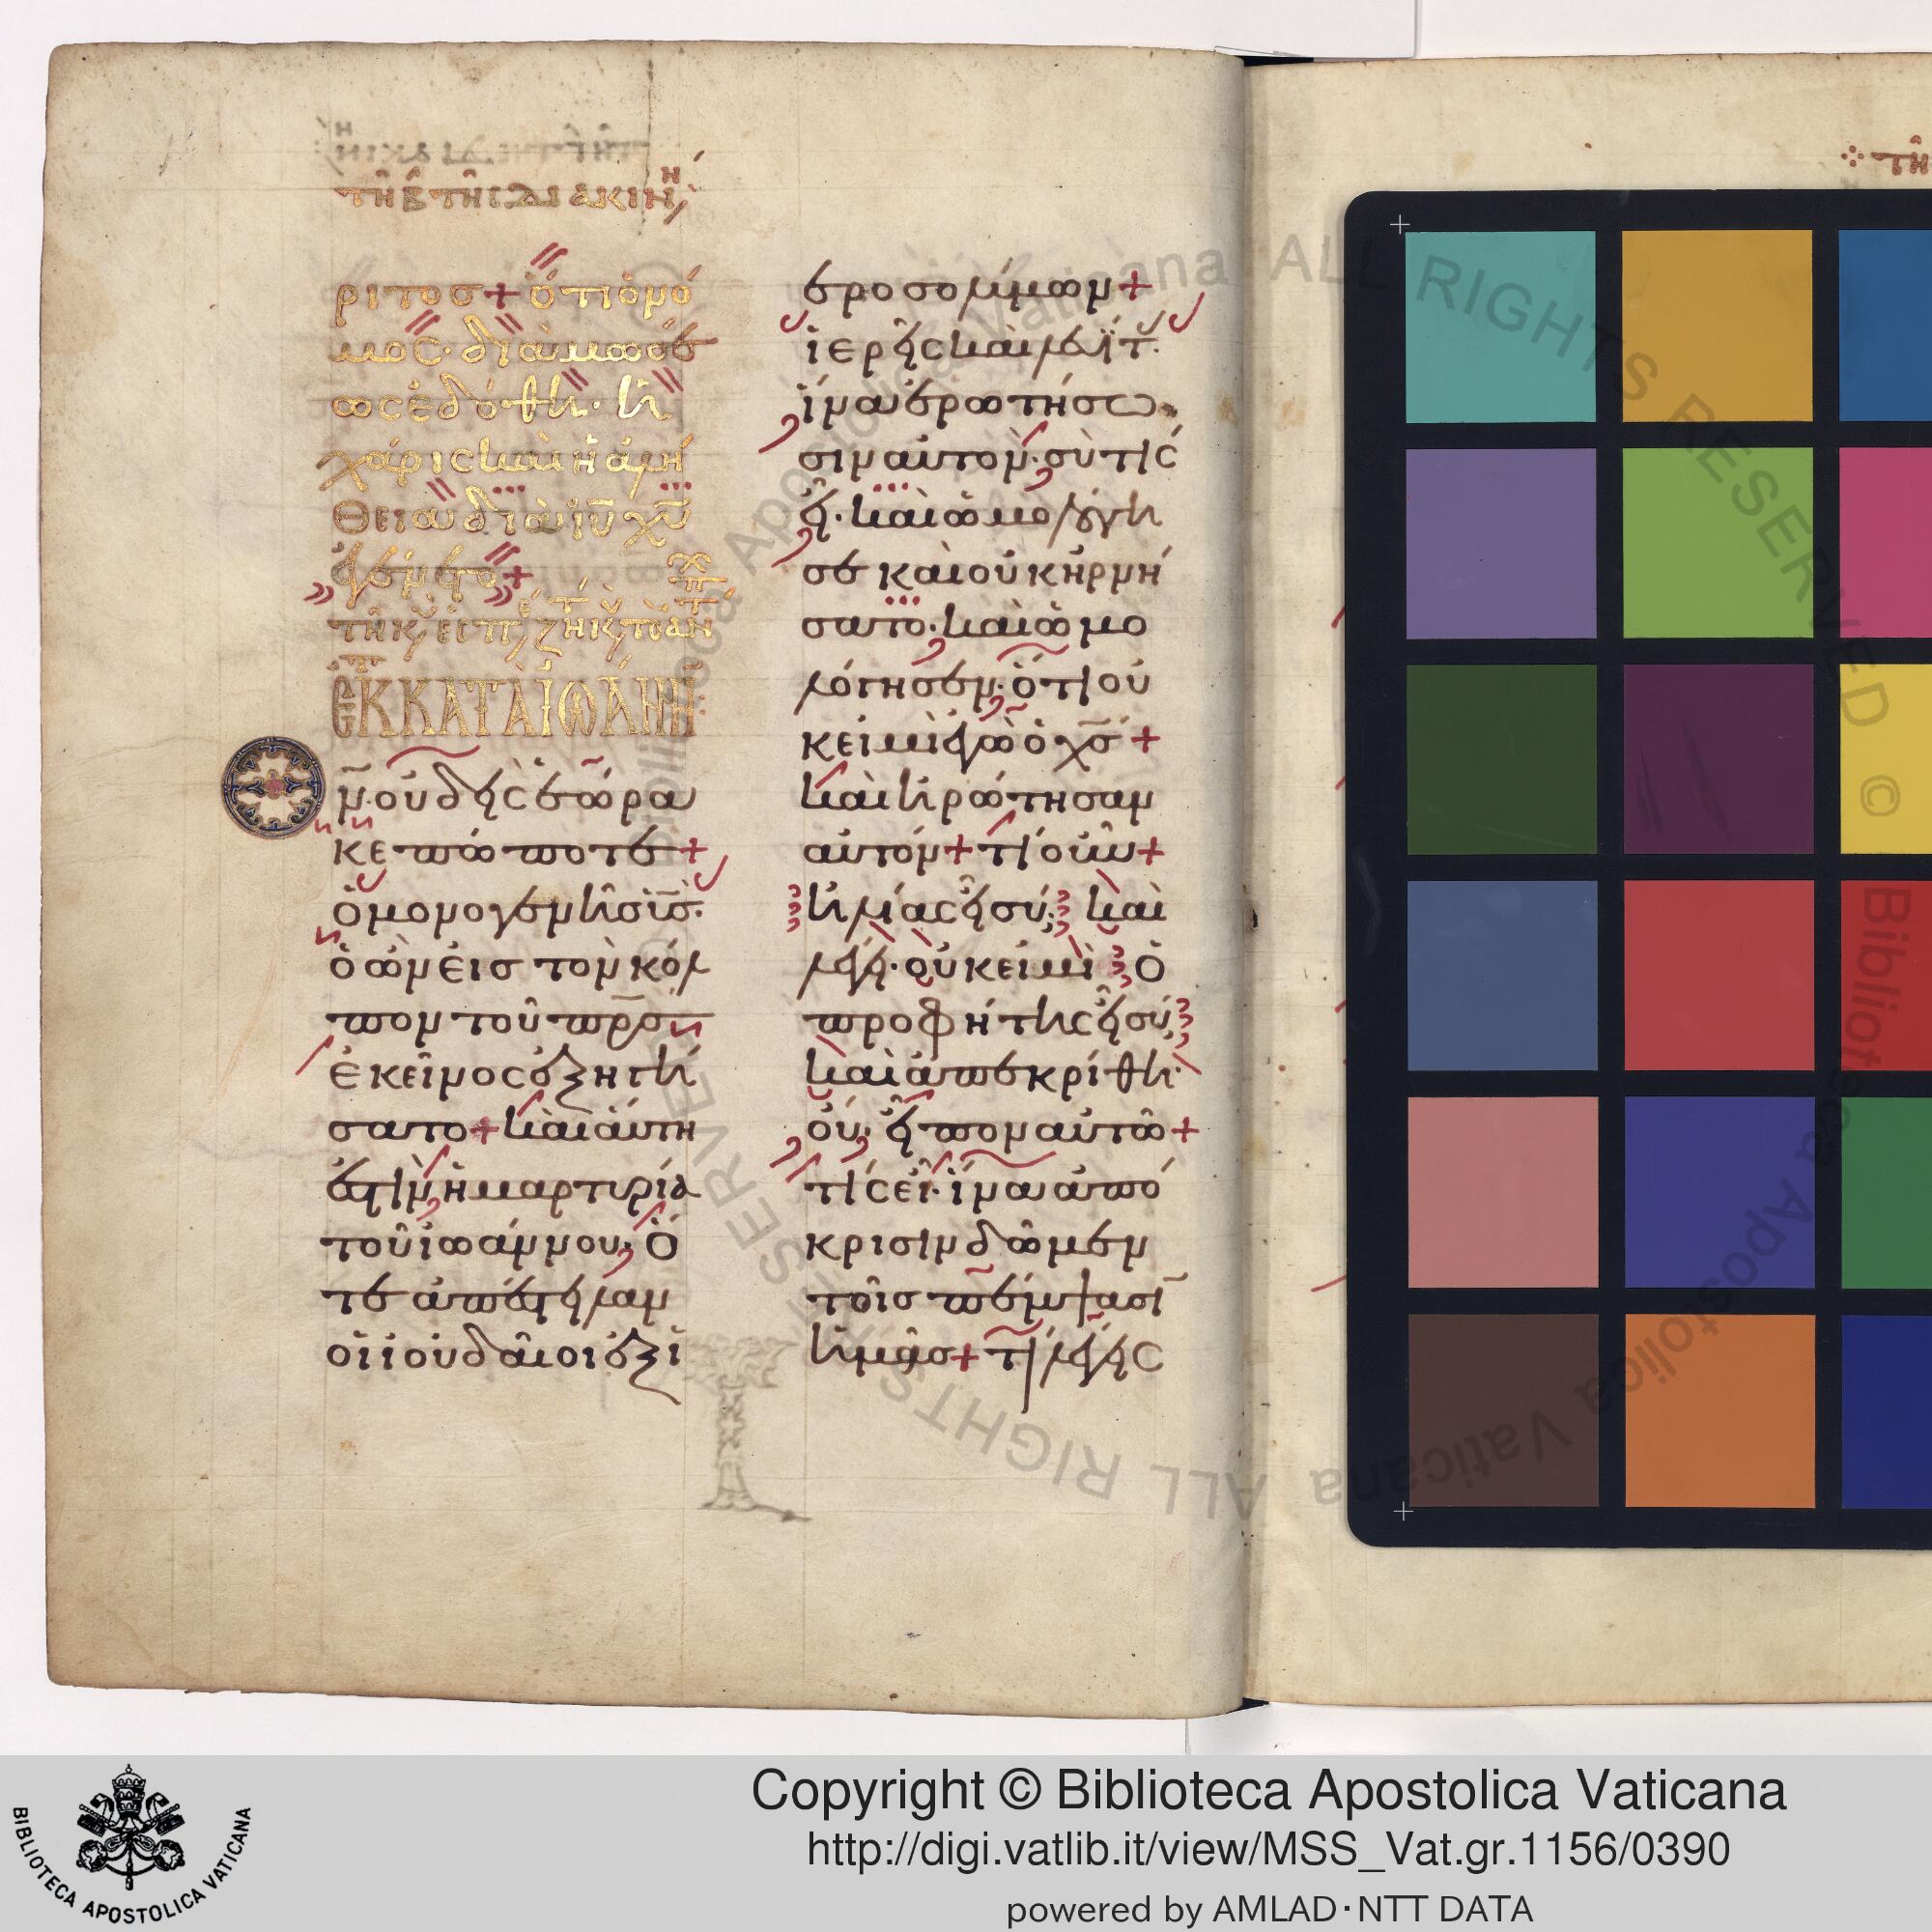 τῆ β τῆς διακινη
ριτος + ὅτι ὁ νό
μος· διὰ μωσέ
ως ἐδόθη· ἡ
χάρις καὶ ἡ ἀλή
θεια διὰ ιυ χυ
ἐγένετο +
ἐκ κατὰ ἰωάννη
ν· οὐδεὶς ἑώρα
κε πώποτε +
ὁ μονογενὴς ις·
ὁ ὢν εἰς τὸν κόλ
πον τοῦ πρς
ἐκεῖνος ἐξηγή
σατο + καὶ αὕτη
ἐστὶν ἡ μαρτυρία
τοῦ ἰωάννου· ὅ
τε ἀπέστειλαν
οἱ ἰουδαῖοι ἐξ ἱ
εροσολύμων +
ἱερεῖς καὶ λευΐτ·
ἵνα ἐρωτήσω
σιν αὐτὸν· σὺ τίς
εἶ· καὶ ὡμολόγη
σε καὶ οὐκ ἠρνή
σατο· καὶ ὡμο
λόγησεν· ὅτι οὐ
κ εἰμὶ ἐγὼ ὁ χς +
καὶ ἠρώτησαν
αὐτόν + τί οὖν +
ἠλίας εἶ σύ· καὶ
λέγει· οὐκ εἰμὶ ὁ
προφήτης εἶ σύ
καὶ ἀπεκρίθη·
οὔ· εἶπον αὐτῶ +
τίς εἶ· ἵνα ἀπό
κρισιν δῶμεν
τοῖς πέμψασι
ἡμᾶς + τί λέγεις
τῆ
Copyright © Biblioteca Apostolica Vaticana
http://digi.vatlib.it/view/MSS_Vat.gr.1156/0390
powered by AMLAD·NTT DATA
BIBLIOTECA APOSTOLICA VATICANA
Biblioteca Apostolica Vaticana ALL RIGHTS RESERVED ©